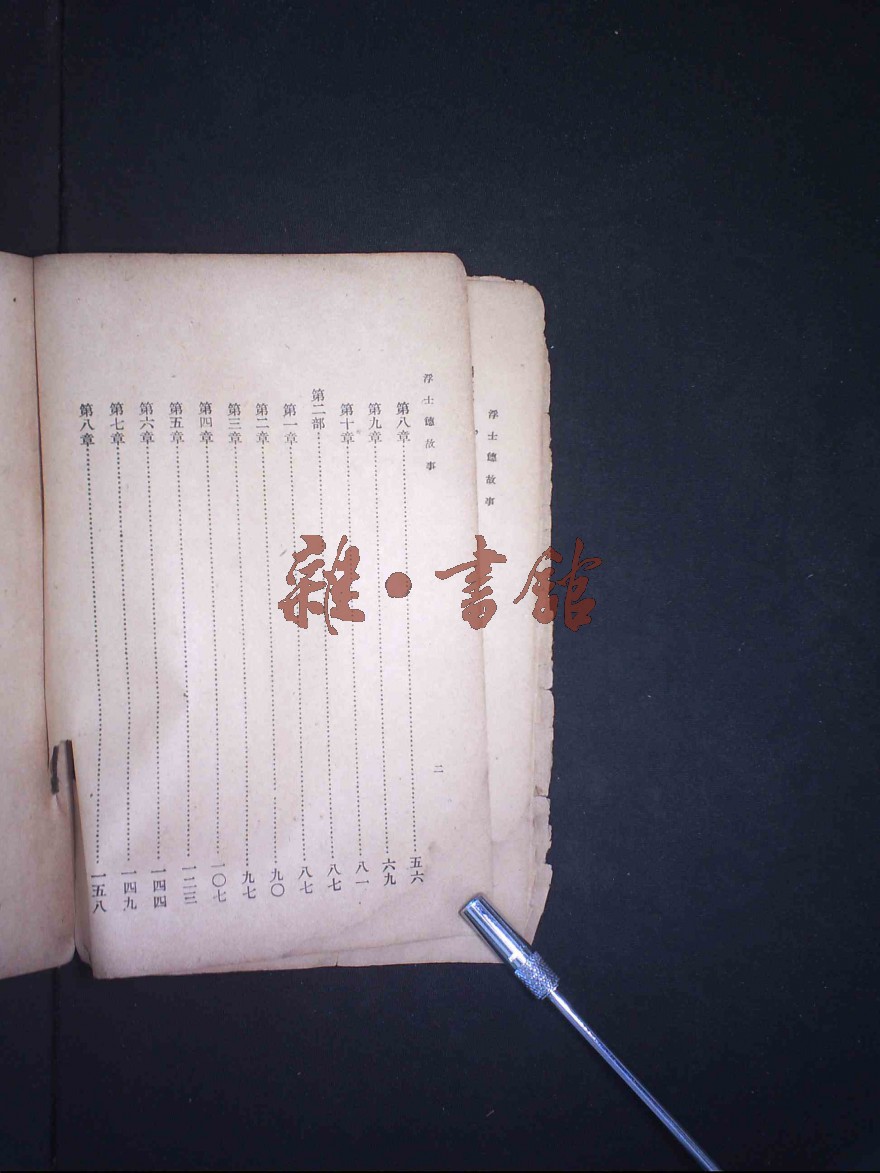 浮士德故事
浮士德故事
第八章……五六
第九章……六九
第十章……八一
第二部……八七
第一章……八七
第二章……九〇
第三章……九七
第四章……一〇七
第五章……一二三
第六章……一四四
第七章……一四九
第八章……一五八
二
雜·書館